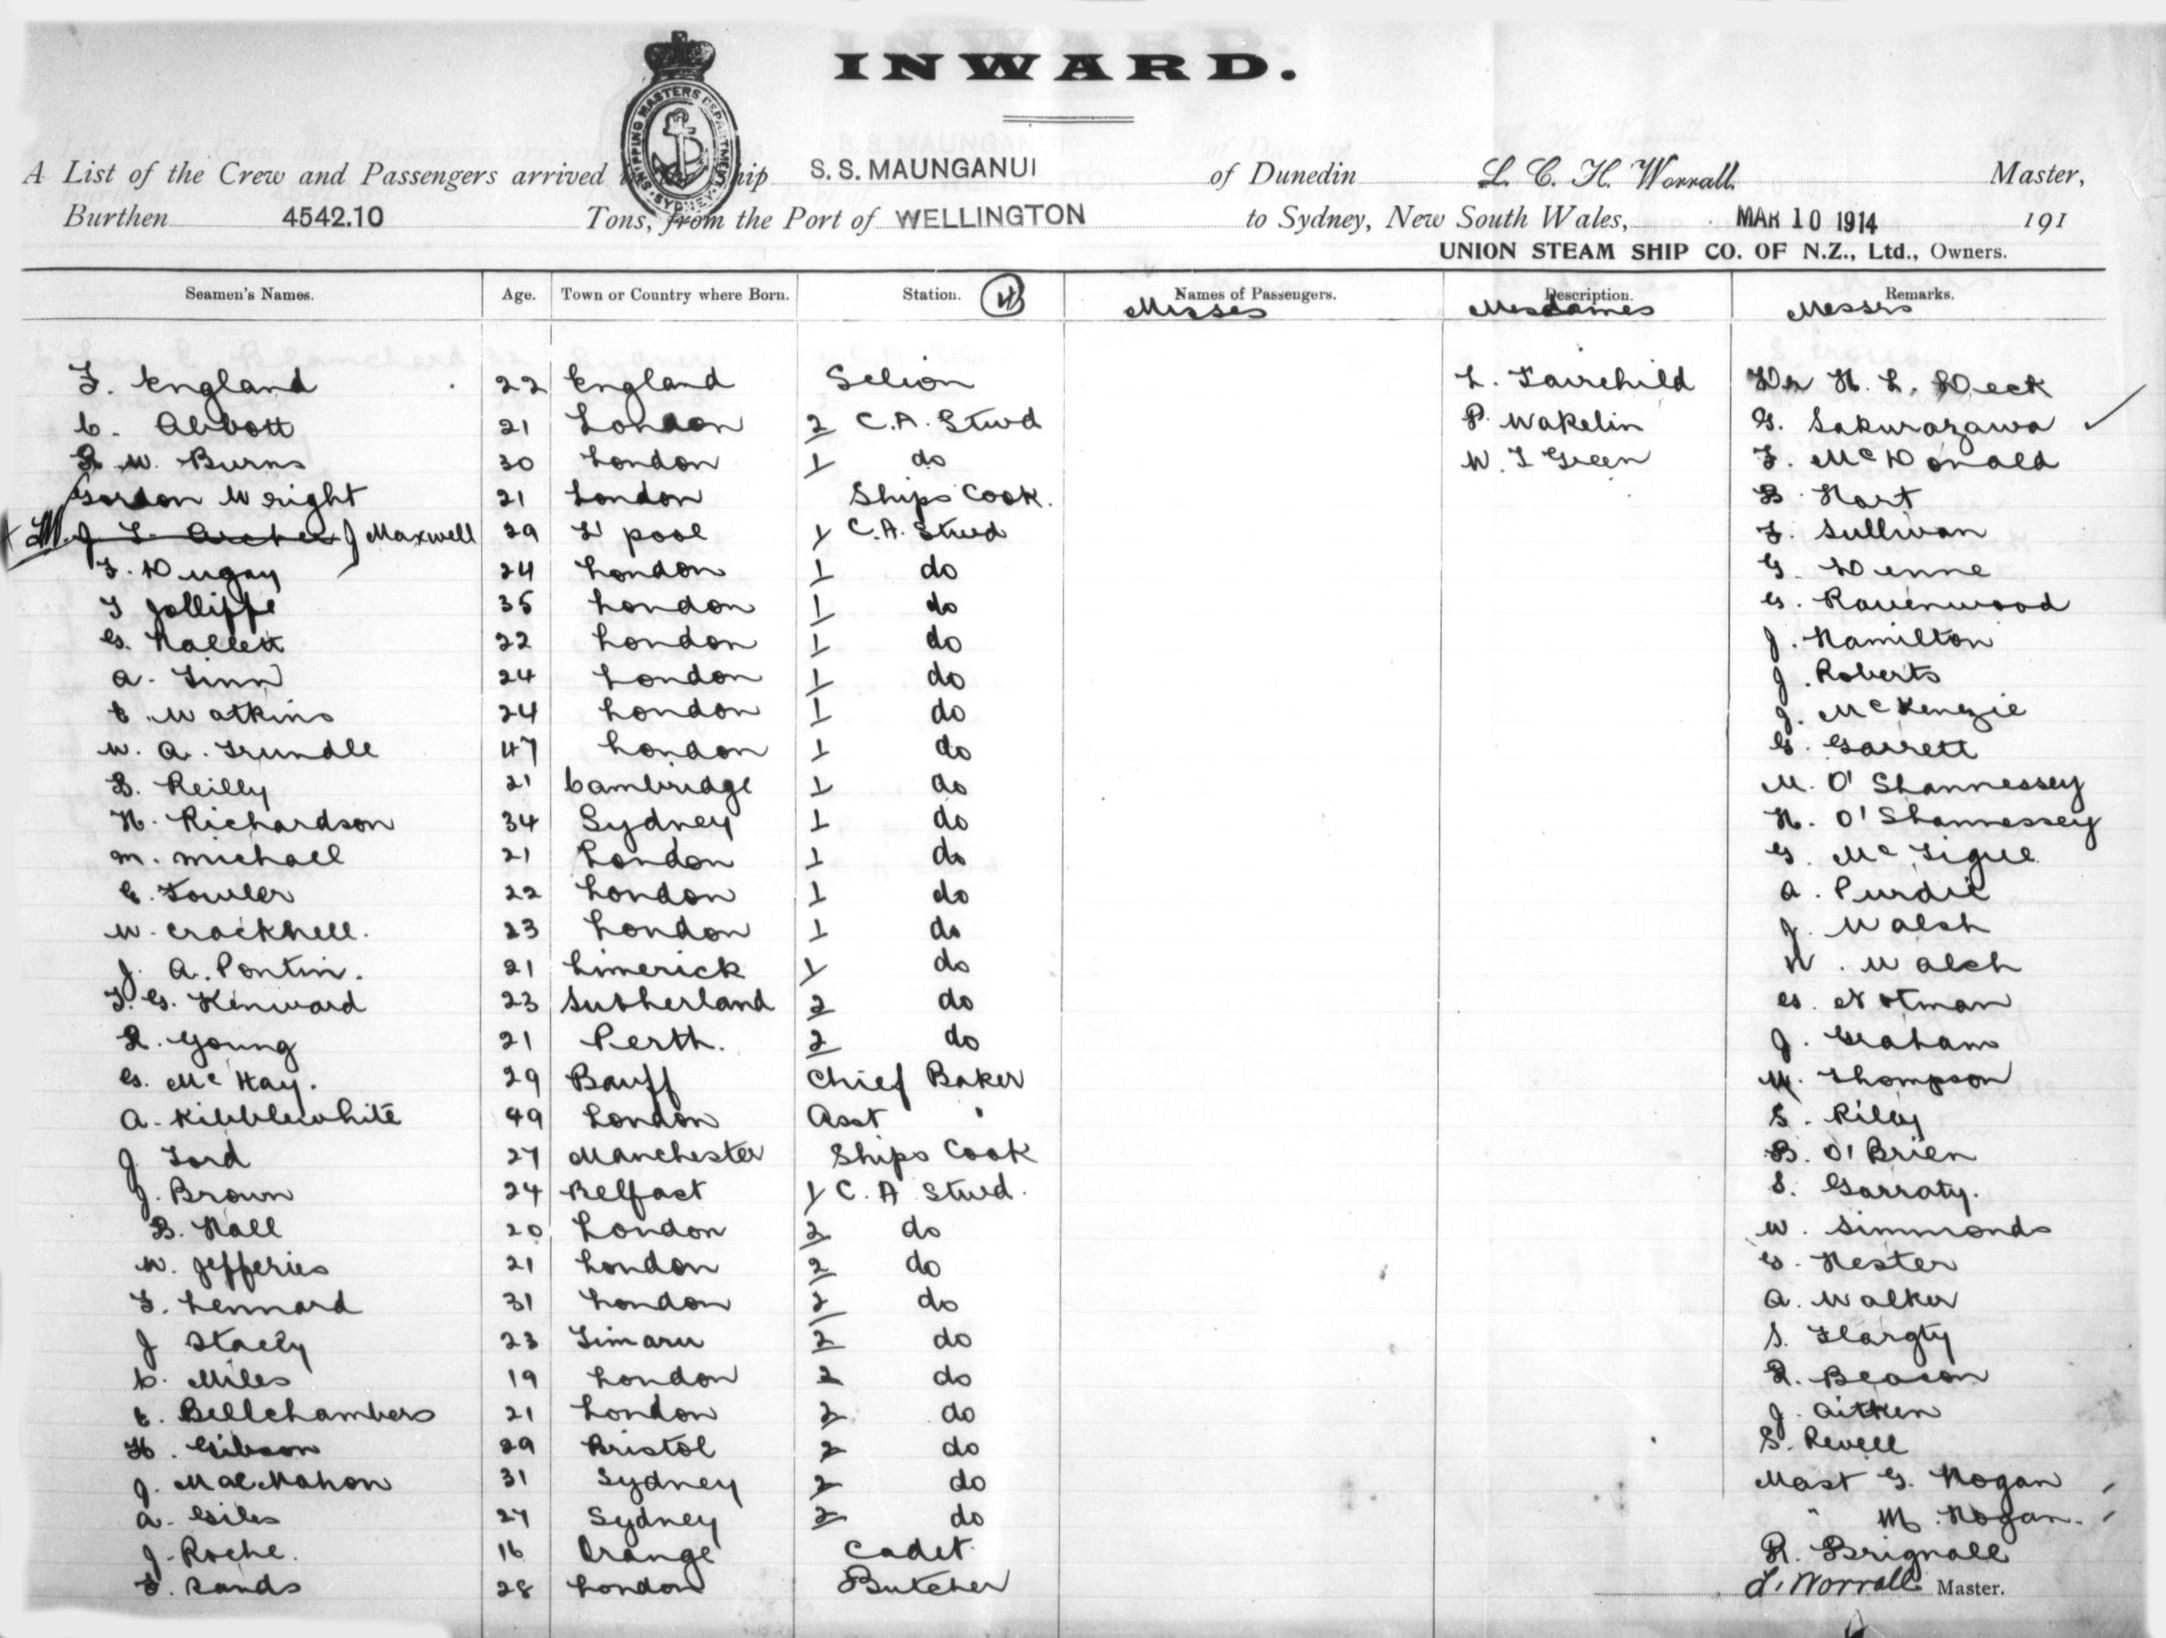 INWARD.
SHIPPING MASTERS DEPARTMENT SYDNEY
A List of the Crew and Passengers arrived ship S.S. MAUNGANUI of Dunedin L. C. H. Worrall. Master,
Burthen 4542.10 Tons, from the Port of WELLINGTON to Sydney, New South Wales, MAR 10 1914 191
UNION STEAM SHIP CO. OF N.Z., Ltd., Owners.
Seamen's Names. Age. Town or Country where Born. Station. Names of Passengers. Description. Remarks.
Misses Mesdames Messrs
F. England 22 England L. Fairchild Dr H. L.
C. Abbott 21 London 2 C.A. Stwd P. Wakelin G. Sakurazawa
R W. Burns 30 London 1 do W. T Green F. McDonald
Gordon Wright 21 London Ships Cook. B. Hart
J Maxwell 29 L'pool 1 C.A. Stwd F. Sullivan
F. Dugay 24 London 1 do G. Denne
T Jolliffe 35 London 1 do G. Ravenwood
G. Hallett 22 London 1 do J. Hamilton
A. Finn 24 London 1 do J. Roberts
E. Watkins 24 London 1 do J. McKenzie
W. A. Trundle 47 London 1 do G. Garrett
B. Reilly 21 Cambridge 1 do M. O'Shannessey
H. Richardson 34 Sydney 1 do H. O'Shannessey
M. Michael 21 London 1 do G. McTigue
E. Fowler 22 London 1 do A. Purdie
W. Cracknell. 23 London 1 do J. Walsh
J. A. Pontin. 21 Limerick 1 do W. Walsh
F. G. Kenward 23 Sutherland 2 do G. Notman
R. Young 21 Perth. 2 do J. Graham
G. McKay. 29 Banff Chief Baker W. Thompson
A. Kibblewhite 49 London Asst " S. Riley
J. Ford 27 Manchester Ships Cook B. O'Brien
J. Brown 24 Belfast 1 C. A Stwd. S. Garraty.
B. Hall 20 London 2 do W. Simmonds
W. Jefferies 21 London 2 do G. Hester
F. Lennard 31 London 2 do A. Walker
J Staely 23 Timaru 2 do S. Flargty
C. Miles 19 London 2 do R. Beacon
E. Bellchambers 21 London 2 do J. Aitken
H. Gibson 29 Bristol 2 do S. Revell
J. MacMahon 31 Sydney 2 do Mast G. Hogan
A. Giles 27 Sydney 2 do " M. Hogan.
J. Roche. 16 Orange Cadet R. Brignall
F. Sands 28 London Butcher L. Worrall. Master.